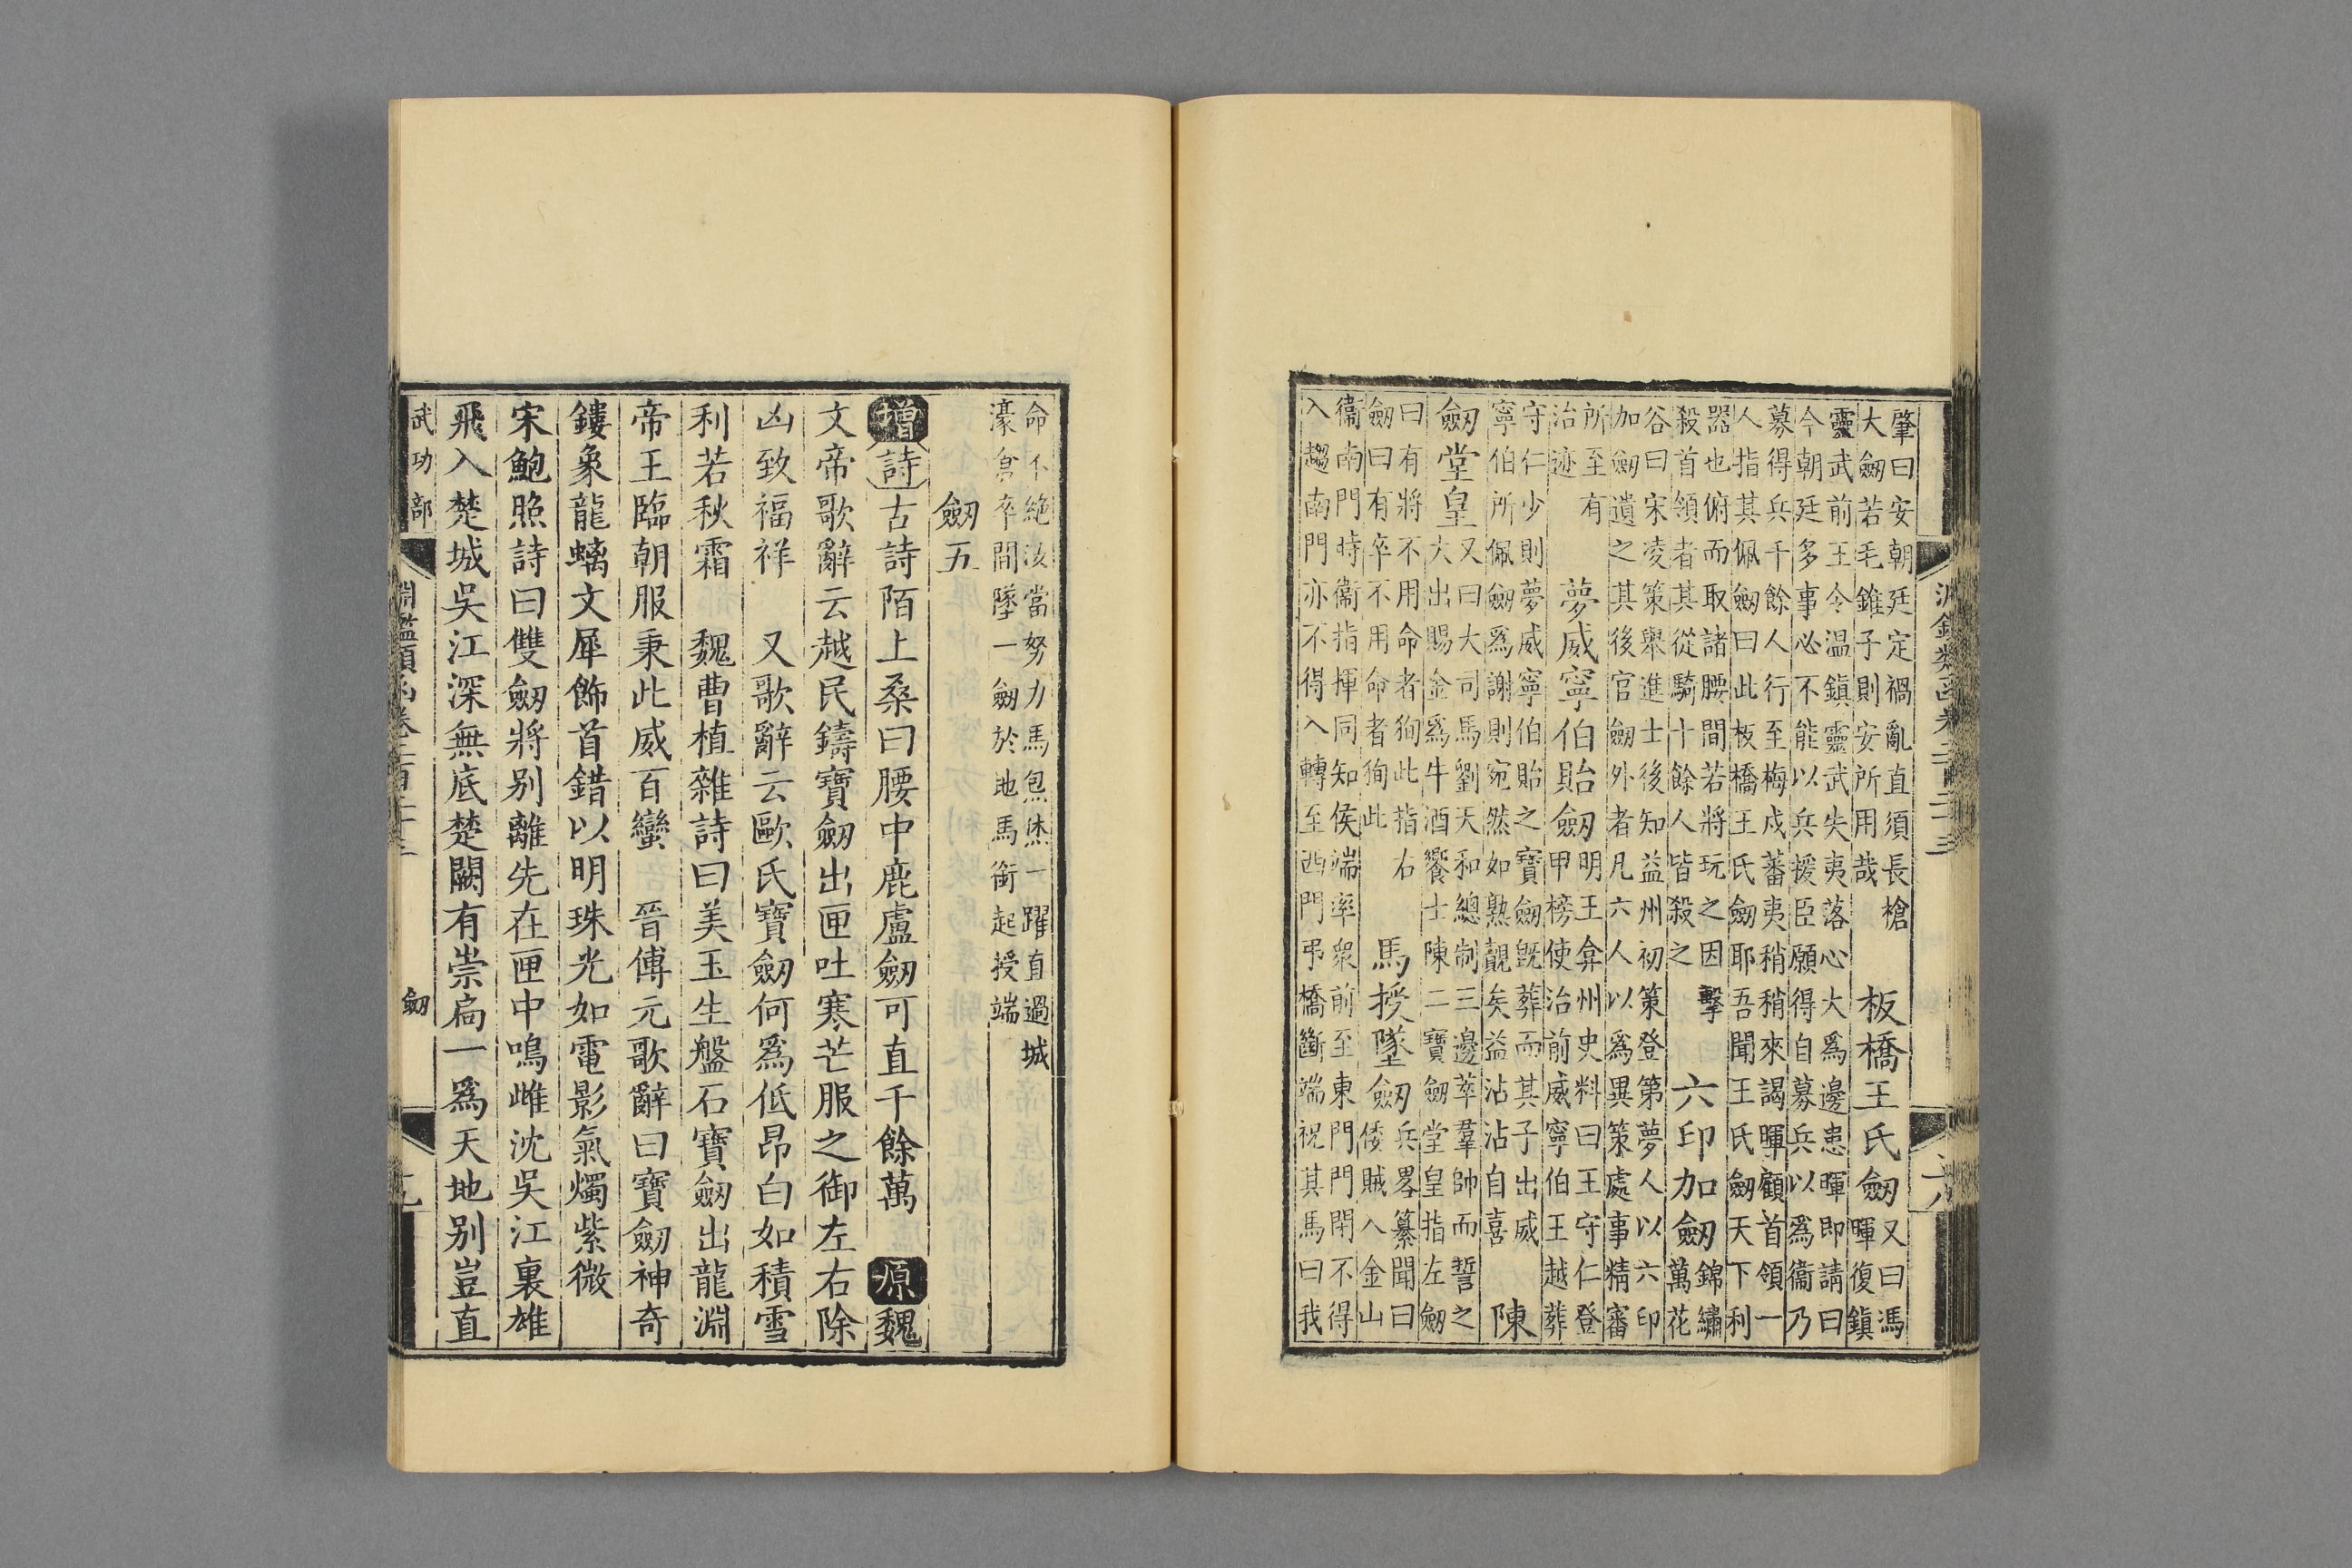 淵鑑類函卷二百二十三
肇曰安朝廷定禍亂直須長槍
大劔若毛錐子則安所用哉
板橋王氏劔
又曰馮
暉復鎮
靈武前王令温鎮靈武失夷落心大爲邊患暉即請曰
今朝廷多事必不能以兵援臣願得自募兵以爲衞乃
募得兵千餘人行至梅戍蕃夷稍稍來謁暉顧首領一
人指其佩劔曰此板橋王氏劔耶吾聞王氏劔天下利
器也俯而取諸腰間若將玩之因擊
殺首領者其從騎十餘人皆殺之
六印加劔
錦繡
萬花
谷曰宋凌策舉進士後知益州初策登第夢人以六印
加劔遺之其後官劔外者凡六人以爲異策處事精審
所至有
治迹
夢威寧伯貽劔
明王弇州史料曰王守仁登
甲榜使治前威寧伯王越葬
守仁少則夢威寧伯貽之寶劔既葬而其子出威
寧伯所佩劔爲謝則宛然如熟覩矣益沾沾自喜
陳
劔堂皇
又曰大司馬劉天和總制三邊萃羣帥而誓之
大出賜金爲牛酒饗士陳二寶劔堂皇指左劔
曰有將不用命者狥此指右
劔曰有卒不用命者狥此
馬授墜劔
兵畧纂聞曰
倭賊入金山
衞南門時衞指揮同知侯端率衆前至東門門閉不得
入趨南門亦不得入轉至西門弔橋斷端祝其馬曰我
命不絶汝當努力馬炰烋一躍直過城
濠倉卒間墜一劔於地馬銜起授端
劔五
增詩古詩陌上桑曰腰中鹿盧劔可直千餘萬 原魏
文帝歌辭云越民鑄寶劔出匣吐寒芒服之御左右除
凶致福祥 又歌辭云歐氏寶劔何爲低昂白如積雪
利若秋霜 魏曹植雜詩曰美玉生盤石寶劔出龍淵
帝王臨朝服秉此威百蠻 晉傅元歌辭曰寶劔神奇
鏤象龍螭文犀飾首錯以明珠光如電影氣燭紫微
宋鮑照詩曰雙劔將别離先在匣中鳴雌沈吳江裏雄
飛入楚城吳江深無底楚闕有崇扃一爲天地别豈直
武功部 淵鑑類函卷二百二十三 劔